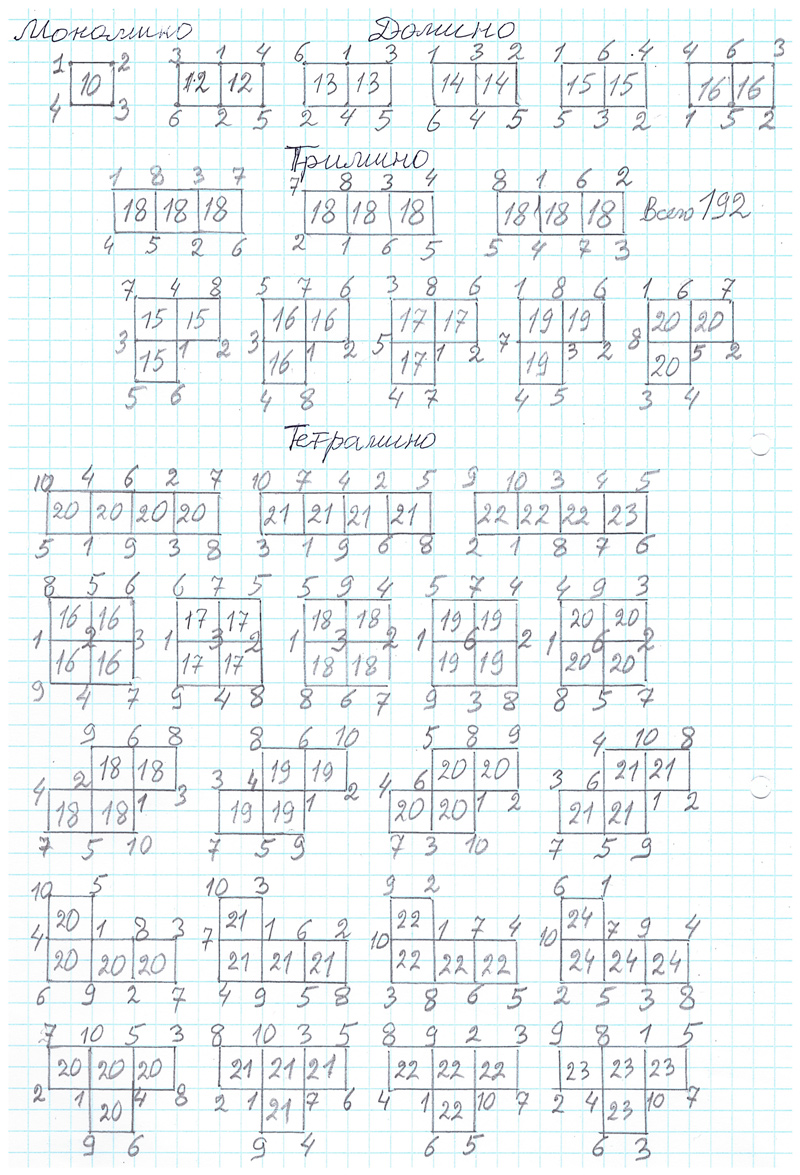 Мономино Домино
3 1 4 6 1 3 1 3 2 1 6 4 4 6 3
1 2
10 12 12 13 13 14 14 15 15 16 16
4 3 6 2 5 2 4 5 6 4 5 5 3 2 1 5 2
Тримино
1 8 3 7 7 8 3 4 8 1 6 2
18 18 18 18 18 18 18 18 18 Всего 192
4 5 2 6 2 1 6 5 5 4 7 3
7 4 8 5 7 6 3 8 6 1 8 6 1 6 7
15 15 16 16 17 17 19 19 20 20
3 1 2 3 1 2 5 1 2 7 3 2 8 5 2
15 16 17 19 20
5 6 4 8 4 7 4 5 3 4
Тетрамино
10 4 6 2 7 10 7 4 2 5 9 10 3 4 5
20 20 20 20 21 21 21 21 22 22 22 23
5 1 9 3 8 3 1 9 6 8 2 1 8 7 6
8 5 6 6 7 5 5 9 4 5 7 4 4 9 3
16 16 17 17 18 18 19 19 20 20
1 2 3 1 3 2 1 3 2 1 6 2 1 6 2
16 16 17 17 18 18 19 19 20 20
9 4 7 9 4 8 8 6 7 9 3 8 8 5 7
9 6 8 8 6 10 5 8 9 4 10 8
18 18 19 19 20 20 21 21
4 2 1 3 3 4 1 2 4 6 1 2 3 6 1 2
18 18 19 19 20 20 21 21
7 5 10 7 5 9 7 3 10 7 5 9
10 5 10 3 9 2 6 1
20 21 22 24
4 1 8 3 7 1 6 2 10 1 7 4 10 7 9 4
20 20 20 21 21 21 22 22 22 24 24 24
6 9 2 7 4 9 5 8 3 8 6 5 2 5 3 8
7 10 5 3 8 10 3 5 8 9 2 3 9 8 1 5
20 20 20 21 21 21 22 22 22 23 23 23
2 1 4 8 2 1 7 6 4 1 10 7 2 4 10 7
20 21 22 23
9 6 9 4 6 5 6 3